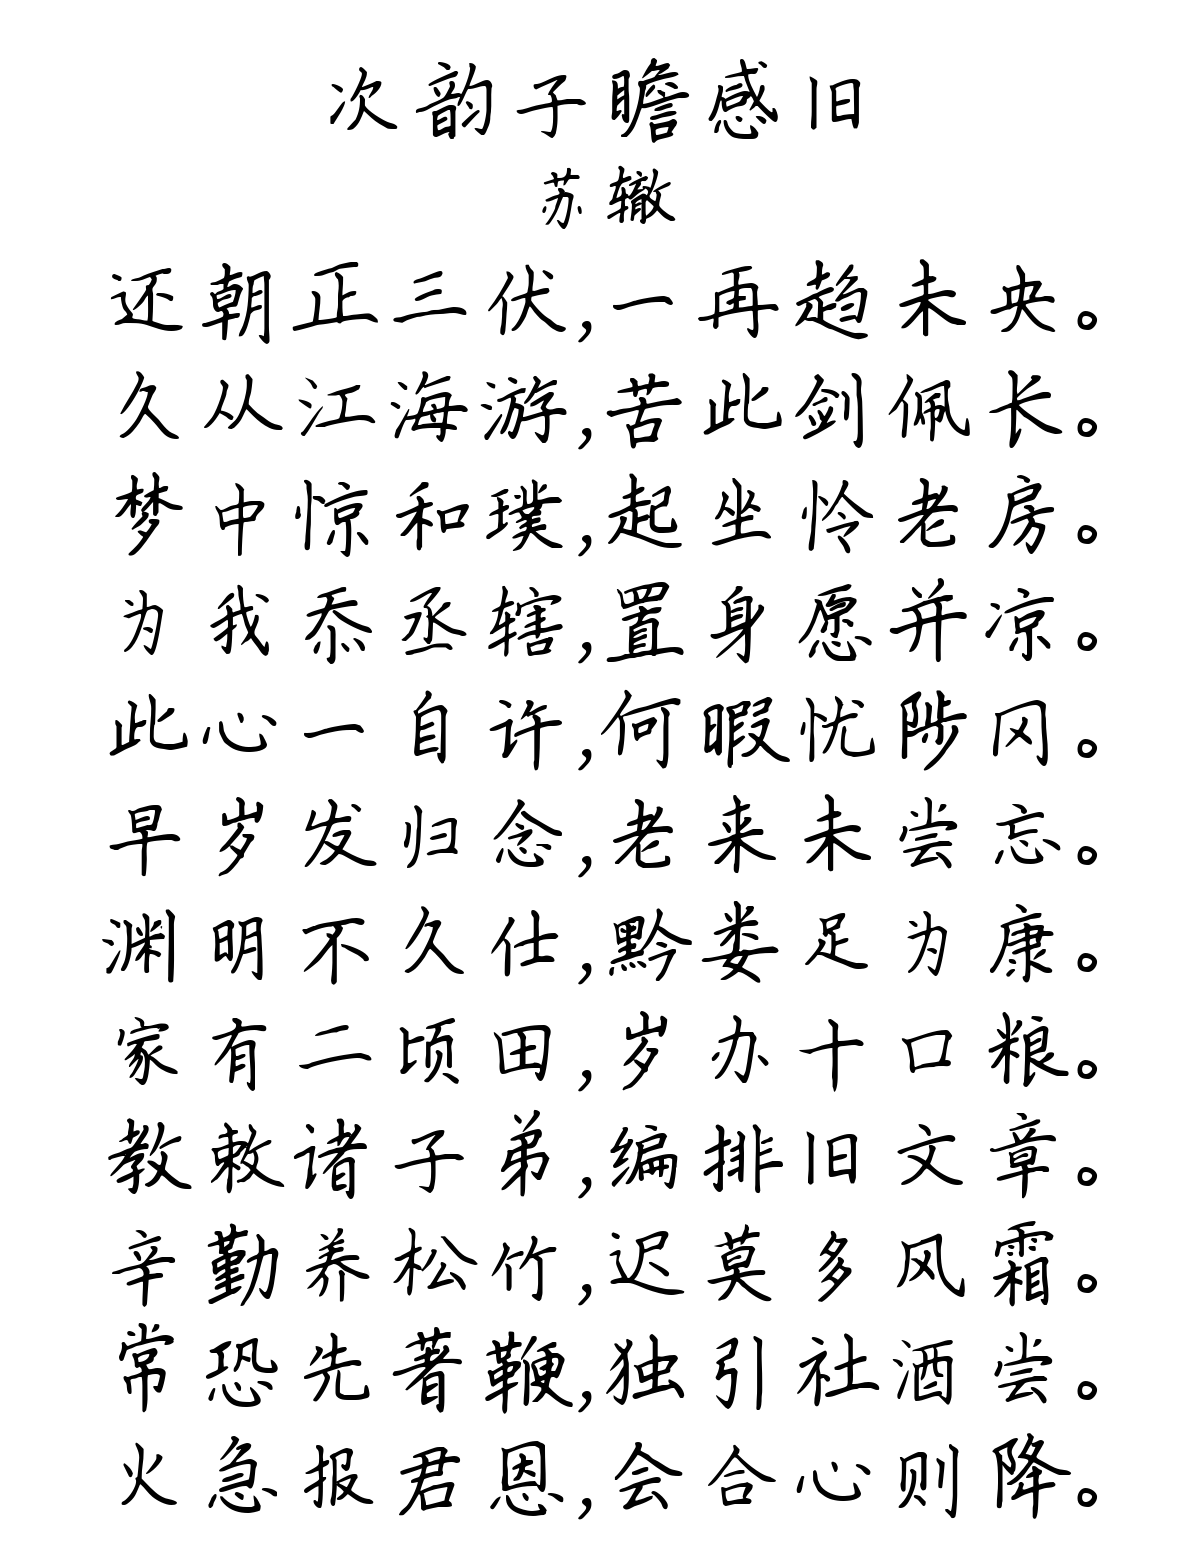 次韵子瞻感旧
苏辙
还朝正三伏,一再趋未央。
久从江海游,苦此剑佩长。
梦中惊和璞,起坐怜老房。
为我忝丞辖,置身愿并凉。
此心一自许,何暇忧陟冈。
早岁发归念,老来未尝忘。
渊明不久仕,黔娄足为康。
家有二顷田,岁办十口粮。
教敕诸子弟,编排旧文章。
辛勤养松竹,迟莫多风霜。
常恐先著鞭,独引社酒尝。
火急报君恩,会合心则降。